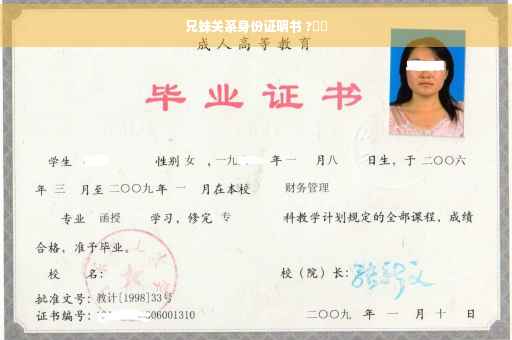 兄妹关系身份证明书 ?
成人高等教育
毕业证书
学生 性别 女 ，一九 年 一 月八 日生，于 二〇〇六
年 三 月至 二〇〇九 年 一 月在本校 财务管理
专业 函授 学习，修完 专 科教学计划规定的全部课程，成绩
合格，准予毕业。
校 名： 校（院）长：
批准文号：教计[1998]33号
证书编号： 06001310 二〇〇九 年 一 月 十 日